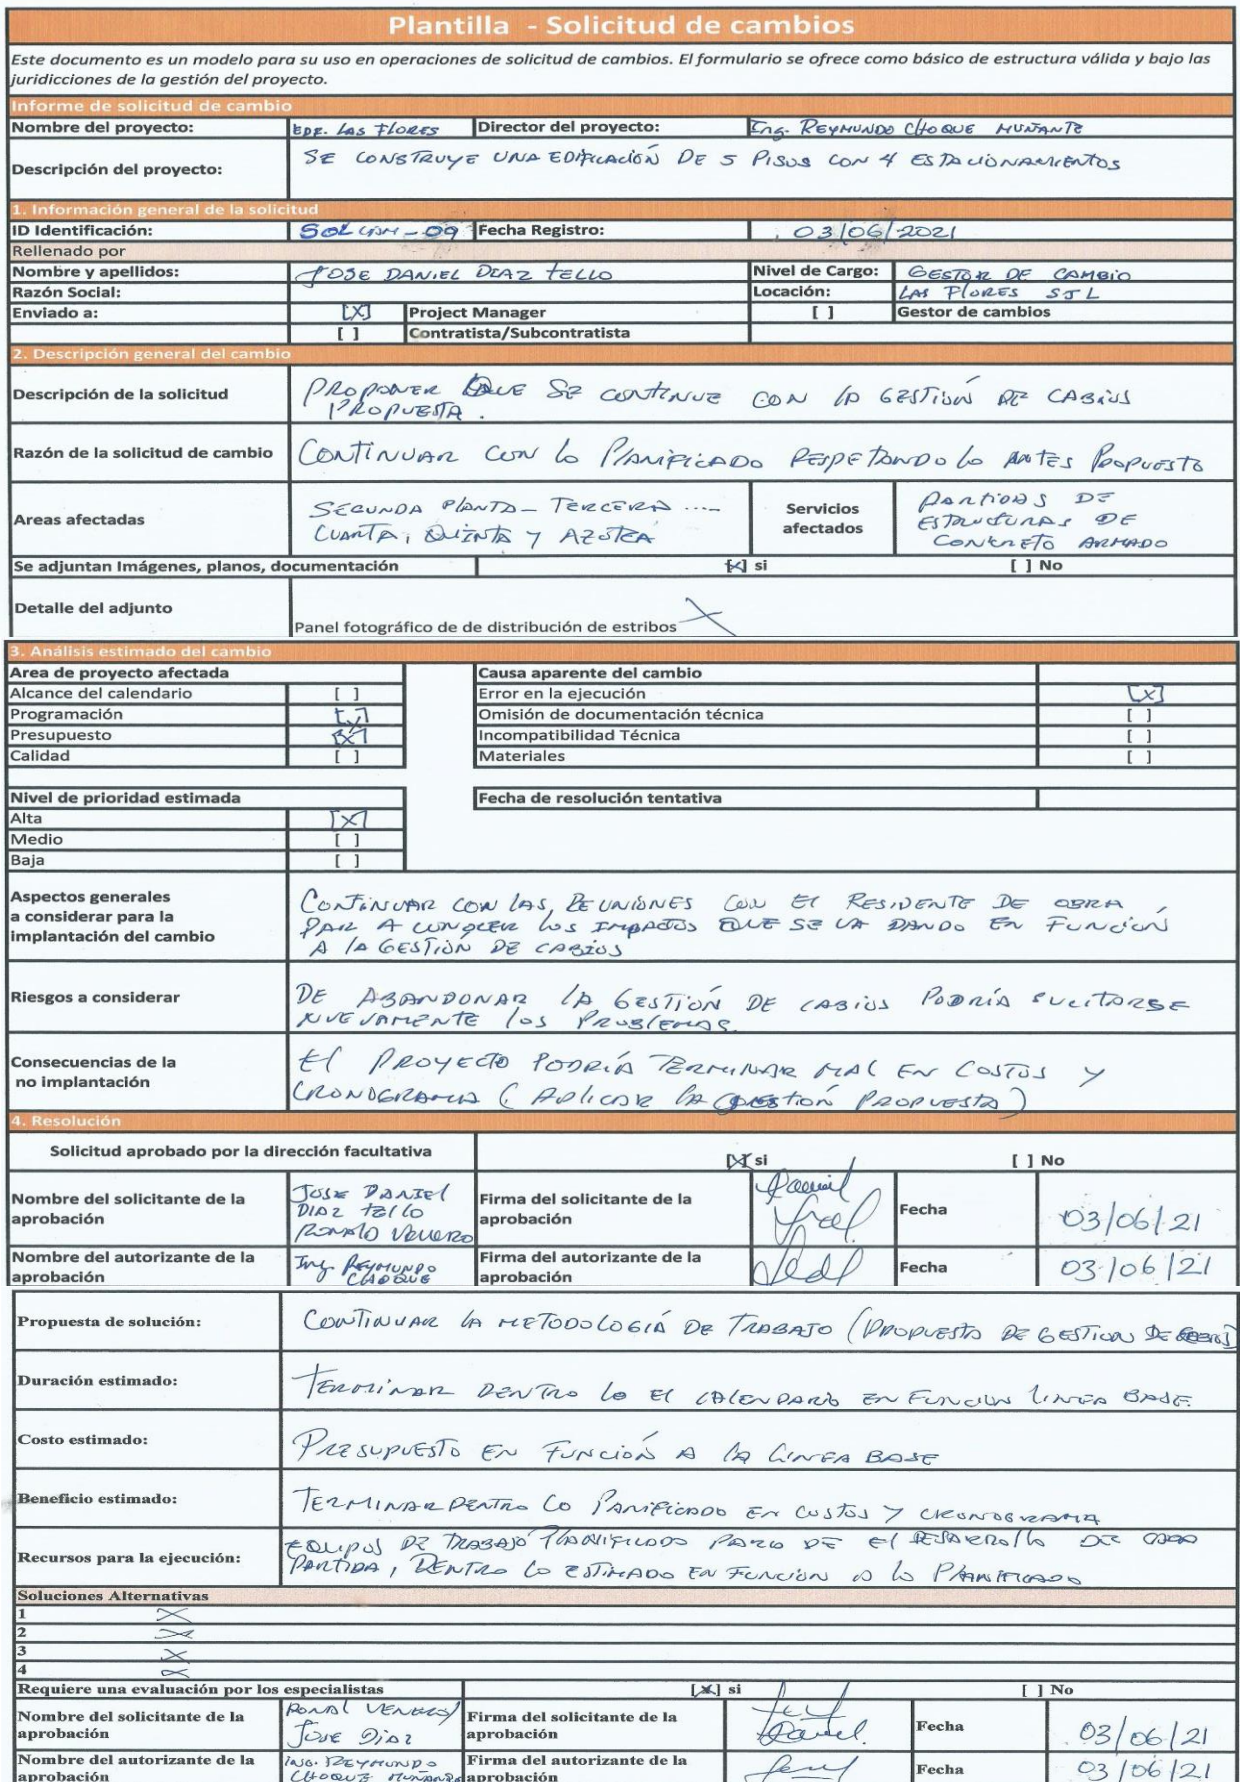 Plantilla - Solicitud de cambios
Este documento es un modelo para su uso en operaciones de solicitud de cambios. El formulario se ofrece como básico de estructura válida y bajo las
juridicciones de la gestión del proyecto.
Informe de solicitud de cambio
Nombre del proyecto: EDF. LAS FLORES Director del proyecto: Ing. REYMUNDO CHOQUE MUÑANTE
Descripción del proyecto: SE CONSTRUYE UNA EDIFICACIÓN DE 5 PISOS CON 4 ESTACIONAMIENTOS
1. Información general de la solicitud
ID Identificación: SOLCAM-09 Fecha Registro: 03/06/2021
Rellenado por
Nombre y apellidos: JOSE DANIEL DIAZ TELLO Nivel de Cargo: GESTOR DE CAMBIO
Razón Social: Locación: LAS FLORES SJL
Enviado a: [X] Project Manager [ ] Gestor de cambios
[ ] Contratista/Subcontratista
2. Descripción general del cambio
Descripción de la solicitud PROPONER QUE SE CONTINUE CON LA GESTIÓN DE CABIOS
PROPUESTA.
Razón de la solicitud de cambio CONTINUAR CON LO PLANIFICADO RESPETANDO LO ANTES PROPUESTO
Areas afectadas SEGUNDA PLANTA - TERCERA ....
CUARTA, QUINTA Y AZOTEA
Servicios
afectados
PARTIDAS DE
ESTRUCTURAS DE
CONCRETO ARMADO
Se adjuntan Imágenes, planos, documentación [X] si [ ] No
Detalle del adjunto
Panel fotográfico de de distribución de estribos X
3. Análisis estimado del cambio
Area de proyecto afectada Causa aparente del cambio
Alcance del calendario [ ] Error en la ejecución [X]
Programación [X] Omisión de documentación técnica [ ]
Presupuesto [X] Incompatibilidad Técnica [ ]
Calidad [ ] Materiales [ ]
Nivel de prioridad estimada Fecha de resolución tentativa
Alta [X]
Medio [ ]
Baja [ ]
Aspectos generales
a considerar para la
implantación del cambio
CONTINUAR CON LAS REUNIONES CON EL RESIDENTE DE OBRA
PAR A CONOCER LOS IMPACTOS QUE SE VA DANDO EN FUNCIÓN
A LA GESTIÓN DE CABIOS
Riesgos a considerar DE ABANDONAR LA GESTIÓN DE CABIOS PODRÍA SUCITARSE
NUEVAMENTE LOS PROBLEMAS.
Consecuencias de la
no implantación
El PROYECTO PODRÍA TERMINAR MAL EN COSTOS Y
CRONOGRAMA (APLICAR LA GESTIÓN PROPUESTA)
4. Resolución
Solicitud aprobado por la dirección facultativa [X] si [ ] No
Nombre del solicitante de la
aprobación
JOSE DANIEL
DIAZ TELLO
RONALD VENERO
Firma del solicitante de la
aprobación
Daniel
Fecha 03/06/21
Nombre del autorizante de la
aprobación
Ing. REYMUNDO
CHOQUE
Firma del autorizante de la
aprobación
Fecha 03/06/21
Propuesta de solución: CONTINUAR LA METODOLOGÍA DE TRABAJO (PROPUESTA DE GESTION DE
Duración estimado: TERMINAR DENTRO LO El CALENDARIO EN FUNCION LINEA BASE.
Costo estimado: PRESUPUESTO EN FUNCIÓN A LA LINEA BASE
Beneficio estimado: TERMINAR DENTRO LO PANIFICADO EN COSTOS Y CRONOGRAMA
Recursos para la ejecución: EQUIPOS DE TRABAJO PLANIFICADO PARA DE El DESARROLLO DE CADA
PARTIDA, DENTRO LO ESTIMADO EN FUNCION A LO PLANIFICADO
Soluciones Alternativas
1 X
2 X
3 X
4 X
Requiere una evaluación por los especialistas [X] si [ ] No
Nombre del solicitante de la
aprobación
RONAL VENERO
JOSE DIAZ
Firma del solicitante de la
aprobación
Daniel.
Fecha 03/06/21
Nombre del autorizante de la
aprobación
ING. REYMUNDO
CHOQUE MUÑANTE
Firma del autorizante de la
aprobación
Fecha 03/06/21